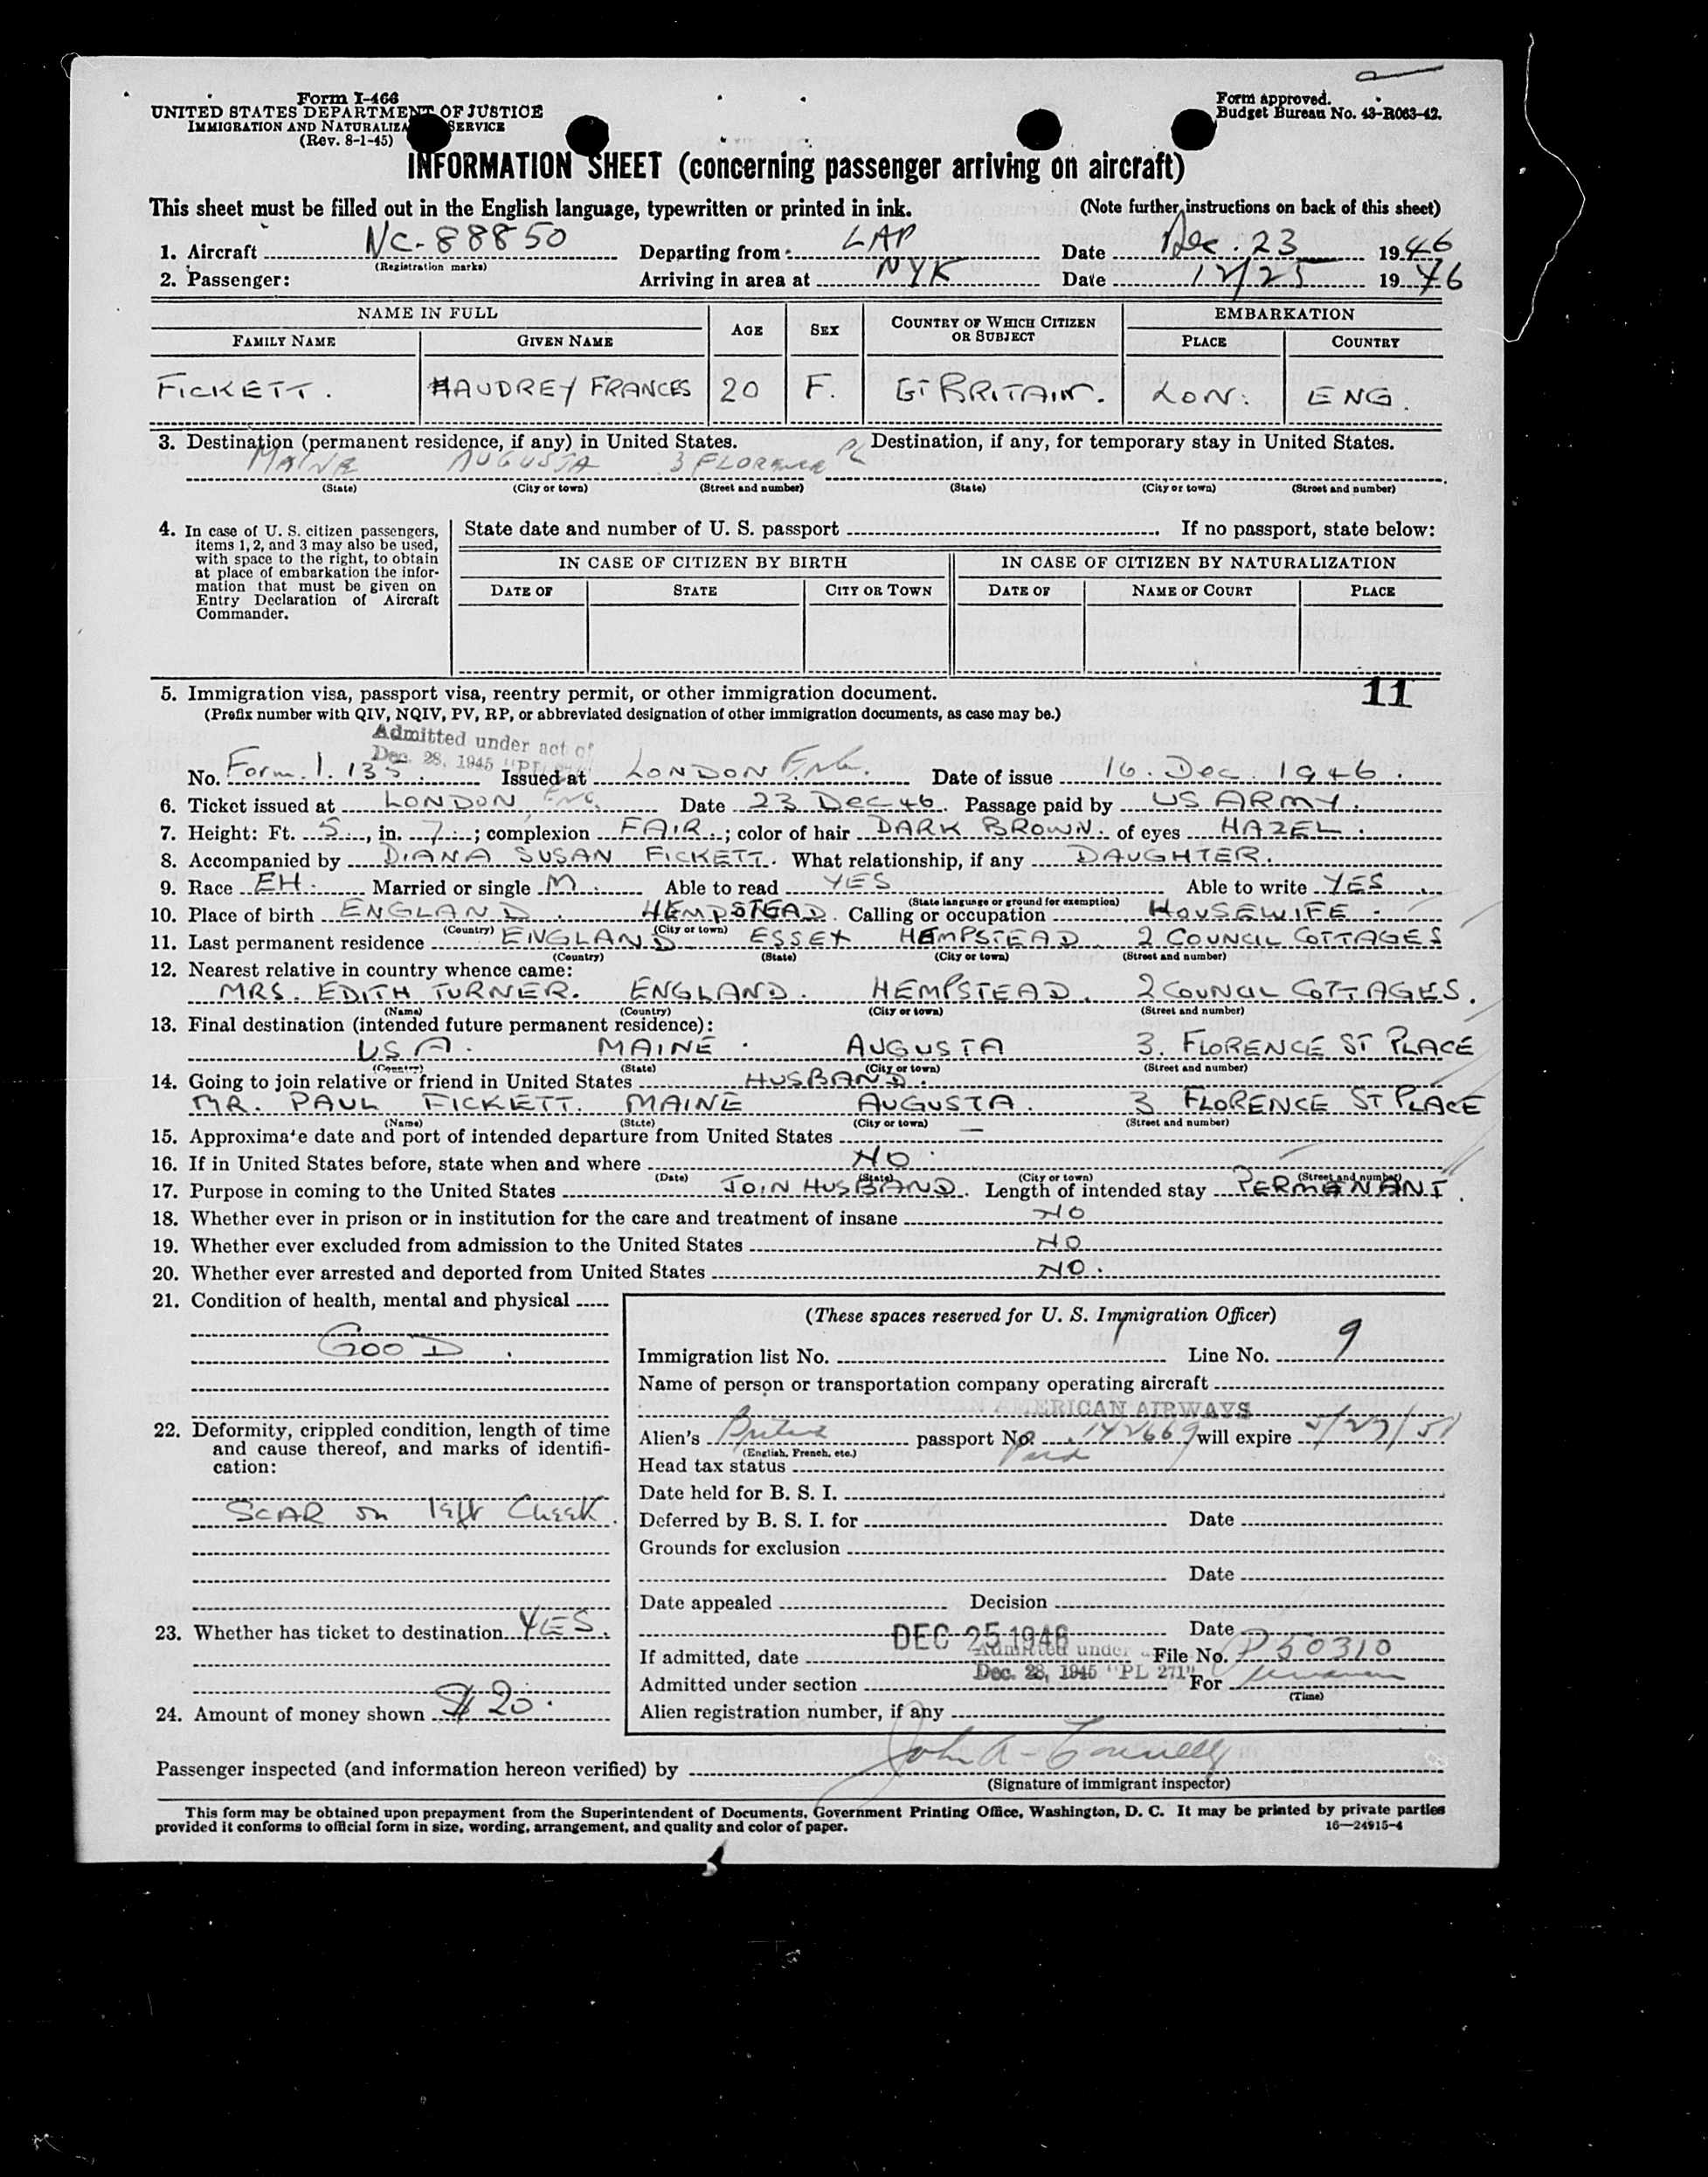 Form I-466
UNITED STATES DEPARTMENT OF JUSTICE
IMMIGRATION AND NATURALIZA SERVICE
(Rev. 8-1-45)
Form approved.
Budget Bureau No. 43-R063-42.
INFORMATION SHEET (concerning passenger arriving on aircraft)
This sheet must be filled out in the English language, typewritten or printed in ink. (Note further instructions on back of this sheet)
1. Aircraft NC-88850 Departing from LAP Date Dec. 23 1946
(Registration marks)
2. Passenger: Arriving in area at NYK Date 12/25 1946
NAME IN FULL AGE SEX COUNTRY OF WHICH CITIZEN OR SUBJECT EMBARKATION
FAMILY NAME GIVEN NAME PLACE COUNTRY
FICKETT. AUDREY FRANCES 20 F. GT BRITAIN. LON: ENG.
3. Destination (permanent residence, if any) in United States. Destination, if any, for temporary stay in United States.
MAINE AUGUSTA 3 FLORENCE PL
(State) (City or town) (Street and number) (State) (City or town) (Street and number)
4. In case of U. S. citizen passengers, items 1, 2, and 3 may also be used, with space to the right, to obtain at place of embarkation the information that must be given on Entry Declaration of Aircraft Commander.
State date and number of U. S. passport If no passport, state below:
IN CASE OF CITIZEN BY BIRTH IN CASE OF CITIZEN BY NATURALIZATION
DATE OF STATE CITY OR TOWN DATE OF NAME OF COURT PLACE
11
5. Immigration visa, passport visa, reentry permit, or other immigration document.
(Prefix number with QIV, NQIV, PV, RP, or abbreviated designation of other immigration documents, as case may be.)
Admitted under act of
Dec. 28, 1945 "PL
No. Form. I. 135. Issued at LONDON ENG. Date of issue 16. Dec. 1946.
6. Ticket issued at LONDON ENG. Date 23 Dec 46. Passage paid by US ARMY.
7. Height: Ft. 5, in. 7; complexion FAIR.; color of hair DARK BROWN. of eyes HAZEL.
8. Accompanied by DIANA SUSAN FICKETT. What relationship, if any DAUGHTER.
9. Race EH. Married or single M. Able to read YES Able to write YES
(State language or ground for exemption)
10. Place of birth ENGLAND HEMPSTEAD. Calling or occupation HOUSEWIFE
(Country) (City or town)
11. Last permanent residence ENGLAND ESSEX HEMPSTEAD 2 COUNCIL COTTAGES
(Country) (State) (City or town) (Street and number)
12. Nearest relative in country whence came:
MRS. EDITH TURNER. ENGLAND. HEMPSTEAD. 2 COUNCIL COTTAGES.
(Name) (Country) (City or town) (Street and number)
13. Final destination (intended future permanent residence):
USA. MAINE. AUGUSTA 3. FLORENCE ST PLACE
(Country) (State) (City or town) (Street and number)
14. Going to join relative or friend in United States HUSBAND.
MR. PAUL FICKETT. MAINE AUGUSTA. 3 FLORENCE ST PLACE
(Name) (State) (City or town) (Street and number)
15. Approximate date and port of intended departure from United States —
16. If in United States before, state when and where NO
(Date) (State) (City or town) (Street and number)
17. Purpose in coming to the United States JOIN HUSBAND. Length of intended stay PERMENANT.
18. Whether ever in prison or in institution for the care and treatment of insane NO
19. Whether ever excluded from admission to the United States NO
20. Whether ever arrested and deported from United States NO.
21. Condition of health, mental and physical
GOOD.
22. Deformity, crippled condition, length of time and cause thereof, and marks of identification:
SCAR on left Cheek.
23. Whether has ticket to destination YES.
24. Amount of money shown $20.
(These spaces reserved for U. S. Immigration Officer)
Immigration list No. Line No. 9
Name of person or transportation company operating aircraft
AMERICAN AIRWAYS
Alien's British passport No. 142669 will expire
(English, French, etc.)
Head tax status Paid
Date held for B. S. I.
Deferred by B. S. I. for Date
Grounds for exclusion
Date
Date appealed Decision
Date
DEC 25 1946
If admitted, date File No. P50310
Admitted under
Dec. 28, 1945 "PL 271"
Admitted under section For
(Time)
Alien registration number, if any
Passenger inspected (and information hereon verified) by John A. Connelly
(Signature of immigrant inspector)
This form may be obtained upon prepayment from the Superintendent of Documents, Government Printing Office, Washington, D. C. It may be printed by private parties
provided it conforms to official form in size, wording, arrangement, and quality and color of paper. 16—24915-4